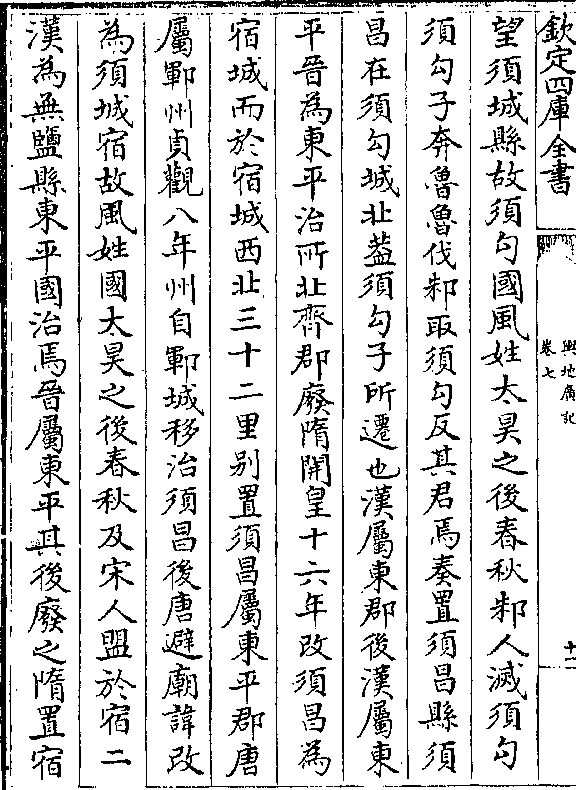 欽定四庫全書
輿地廣記
卷七
十一
望須城縣故須句國風姓太昊之後春秋邾人滅須句
須句子奔魯魯伐邾取須句反其君焉秦置須昌縣須
昌在須句城北蓋須句子所遷也漢屬東郡後漢屬東
平晉為東平治所北齊郡廢隋開皇十六年改須昌為
宿城而於宿城西北三十二里别置須昌屬東平郡唐
屬鄆州貞觀八年州自鄆城移治須昌後唐避廟諱改
為須城宿故風姓國太昊之後春秋及宋人盟於宿二
漢為無鹽縣東平國治焉晉屬東平其後廢之隋置宿